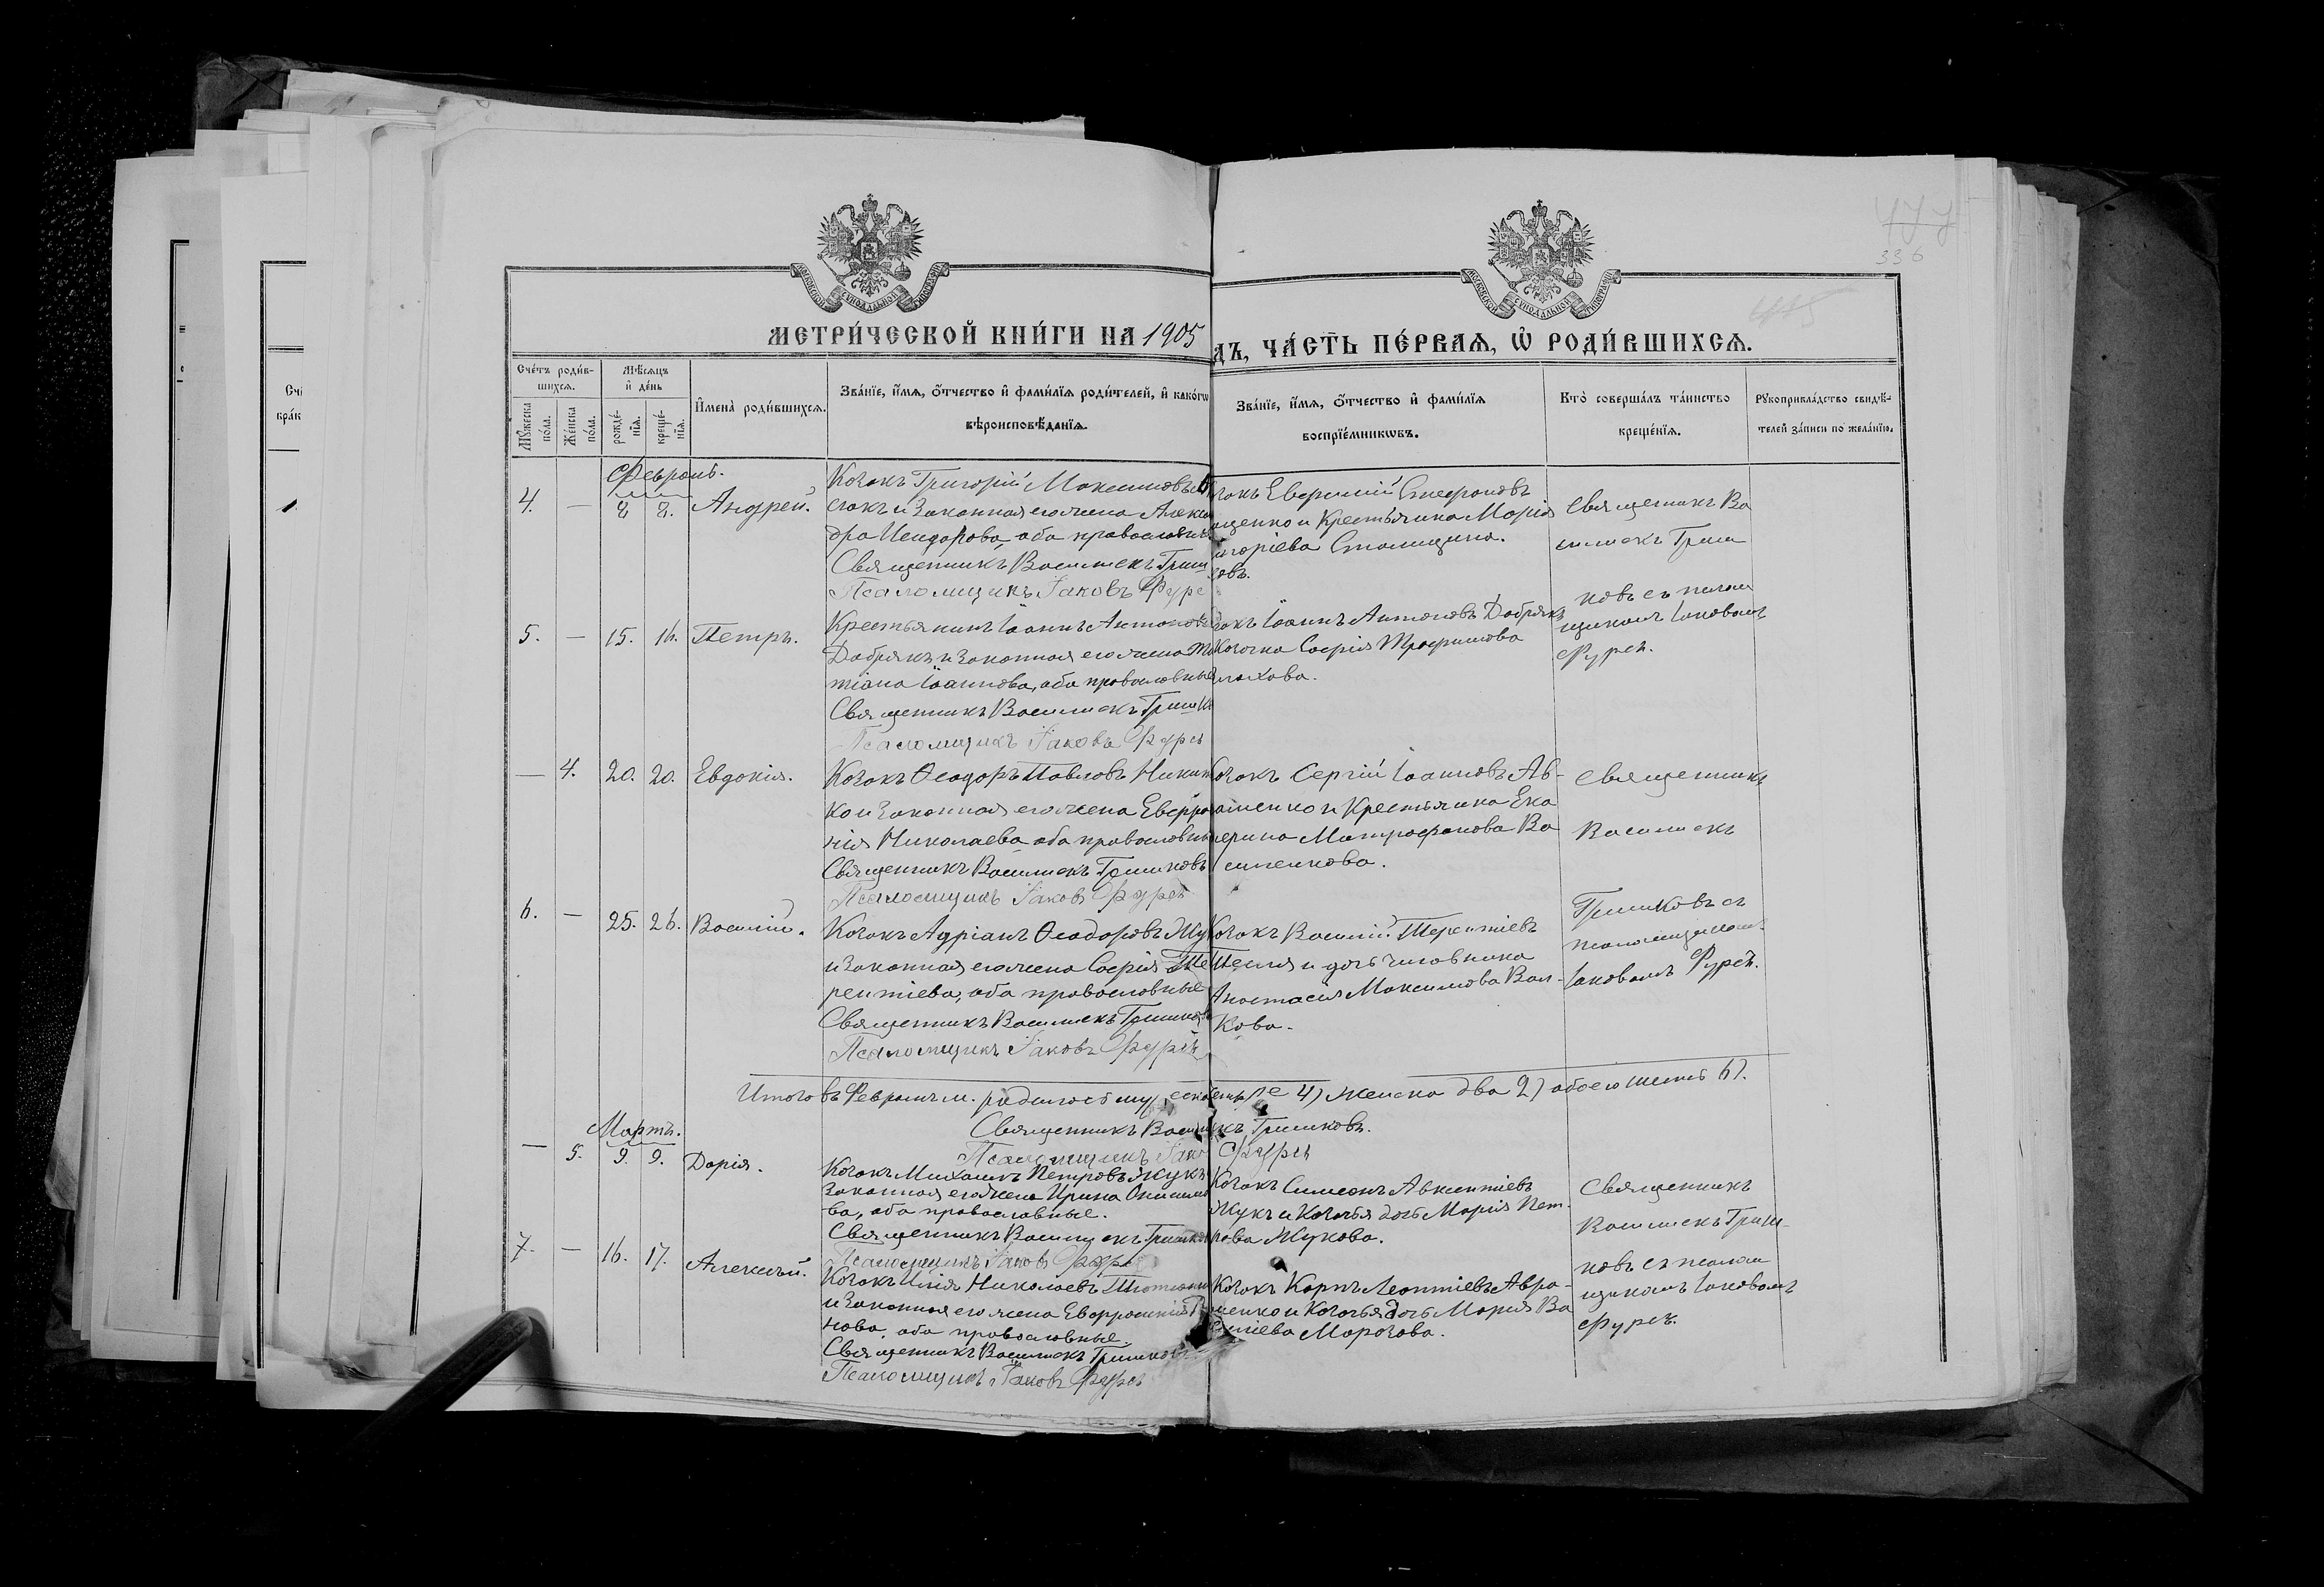 336
МЕТРИ́ЧЕСКОЙ КНИ́ГИ НА 1905
ДЪ, ЧА́СТЬ ПЕ́РВАЯ, Ѽ РОДИ́ВШИХСЯ.
Сче́тъ роди́в-
шихся.
Мѣ́сяцъ
и҆ де́нь
Мꙋ́жеска по́ла.
Же́нска по́ла.
рожде́-
нїя.
креще́-
нїя.
И҆мена̀ роди́вшихся.
Зва́нїе, и҆́мя, ѻ҆́тчество и҆ фами́лїя роди́телей, и҆ како́гѡ
вѣроисповѣ́данїя.
Зва́нїе, и҆́мя, ѻ҆́тчество и҆ фами́лїя
воспрїе́мникѡвъ.
Кто̀ соверша́лъ та́инство
креще́нїя.
Рꙋкоприкла́дство свидѣ́-
телей за́писи по жела́нїю.
Февраль.
4. — 8 8. Андрей.
Козакъ Григорій Максимовъ
и законная его жена Алекса
дра Исидорова, оба православные
Священникъ Василискъ Гриш
Псаломщикъ Іаковъ Фурс
закъ Евфимій Стефановъ
щенко и Крестьянка Марія
игоріева Столицина.
ковъ.
Священникъ Ва
силискъ Гриш
ковъ съ псалом
щикомъ Іаковомъ
Фурсъ.
5. — 15. 16. Петръ.
Крестьянинъ Іоаннъ Антоновъ
Добрякъ и законная его жена Та
тіана Іоаннова, оба православные
Священникъ Василискъ Гришк
Псаломщикъ Іаковъ Фурсъ
закъ Іоаннъ Антоновъ Добрякъ
Козачка Софія Трофимова
лахова.
— 4. 20. 20. Евдокія.
Козакъ Ѳеодоръ Павловъ Никит
ко и законная его жена Евфро
нія Николаева, оба православны
Священникъ Василискъ Гришковъ
Псаломщикъ Іаковъ Фурсъ
Козакъ Сергій Іоанновъ Ав-
раменко и Крестьянка Ека
терина Митрофанова Ва
силенкова.
Священникъ
Василискъ
Гришковъ съ
псаломщикомъ
Іаковомъ Фурсъ.
6. — 25. 26. Василій.
Козакъ Адріанъ Ѳеодоровъ Жу
и законная его жена Софія Те
рентіева, оба православные
Священникъ Василискъ Гришковъ
Псаломщикъ Іаковъ Фурсъ
Козакъ Василій Терентіевъ
Тесля и дочь чиновника
Анастасія Максимова Вол-
кова.
Итого въ Февралѣ м. родилось муж еска четыре 4) женска два 2) обоего шесть 6).
Священникъ Василискъ Гришковъ.
Псаломщикъ Іако Фурсъ
Мартъ.
— 5. 9. 9. Дарія.
Козакъ Михаилъ Петровъ Жукъ
законная его жена Ирина Онисимо
ва, оба православные.
Священникъ Василискъ Гришков
Псаломщикъ Іаковъ Фурсъ
Козакъ Симеонъ Авксентіевъ
Жукъ и Козачья дочь Марія Пет-
рова Жукова.
Священникъ
Василискъ Гриш-
ковъ съ псалом
щикомъ Іаковомъ
Фурсъ.
7. — 16. 17. Алексѣй.
Козакъ Илія Николаевъ
и законная его жена Евфросинія
нова, оба православные.
Священникъ Василискъ Гришковъ
Псаломщикъ Іаковъ Фурсъ
Козакъ Карпъ Леонтіевъ Авра-
менко и Козачья дочь Марія Ва
силіева Морозова.